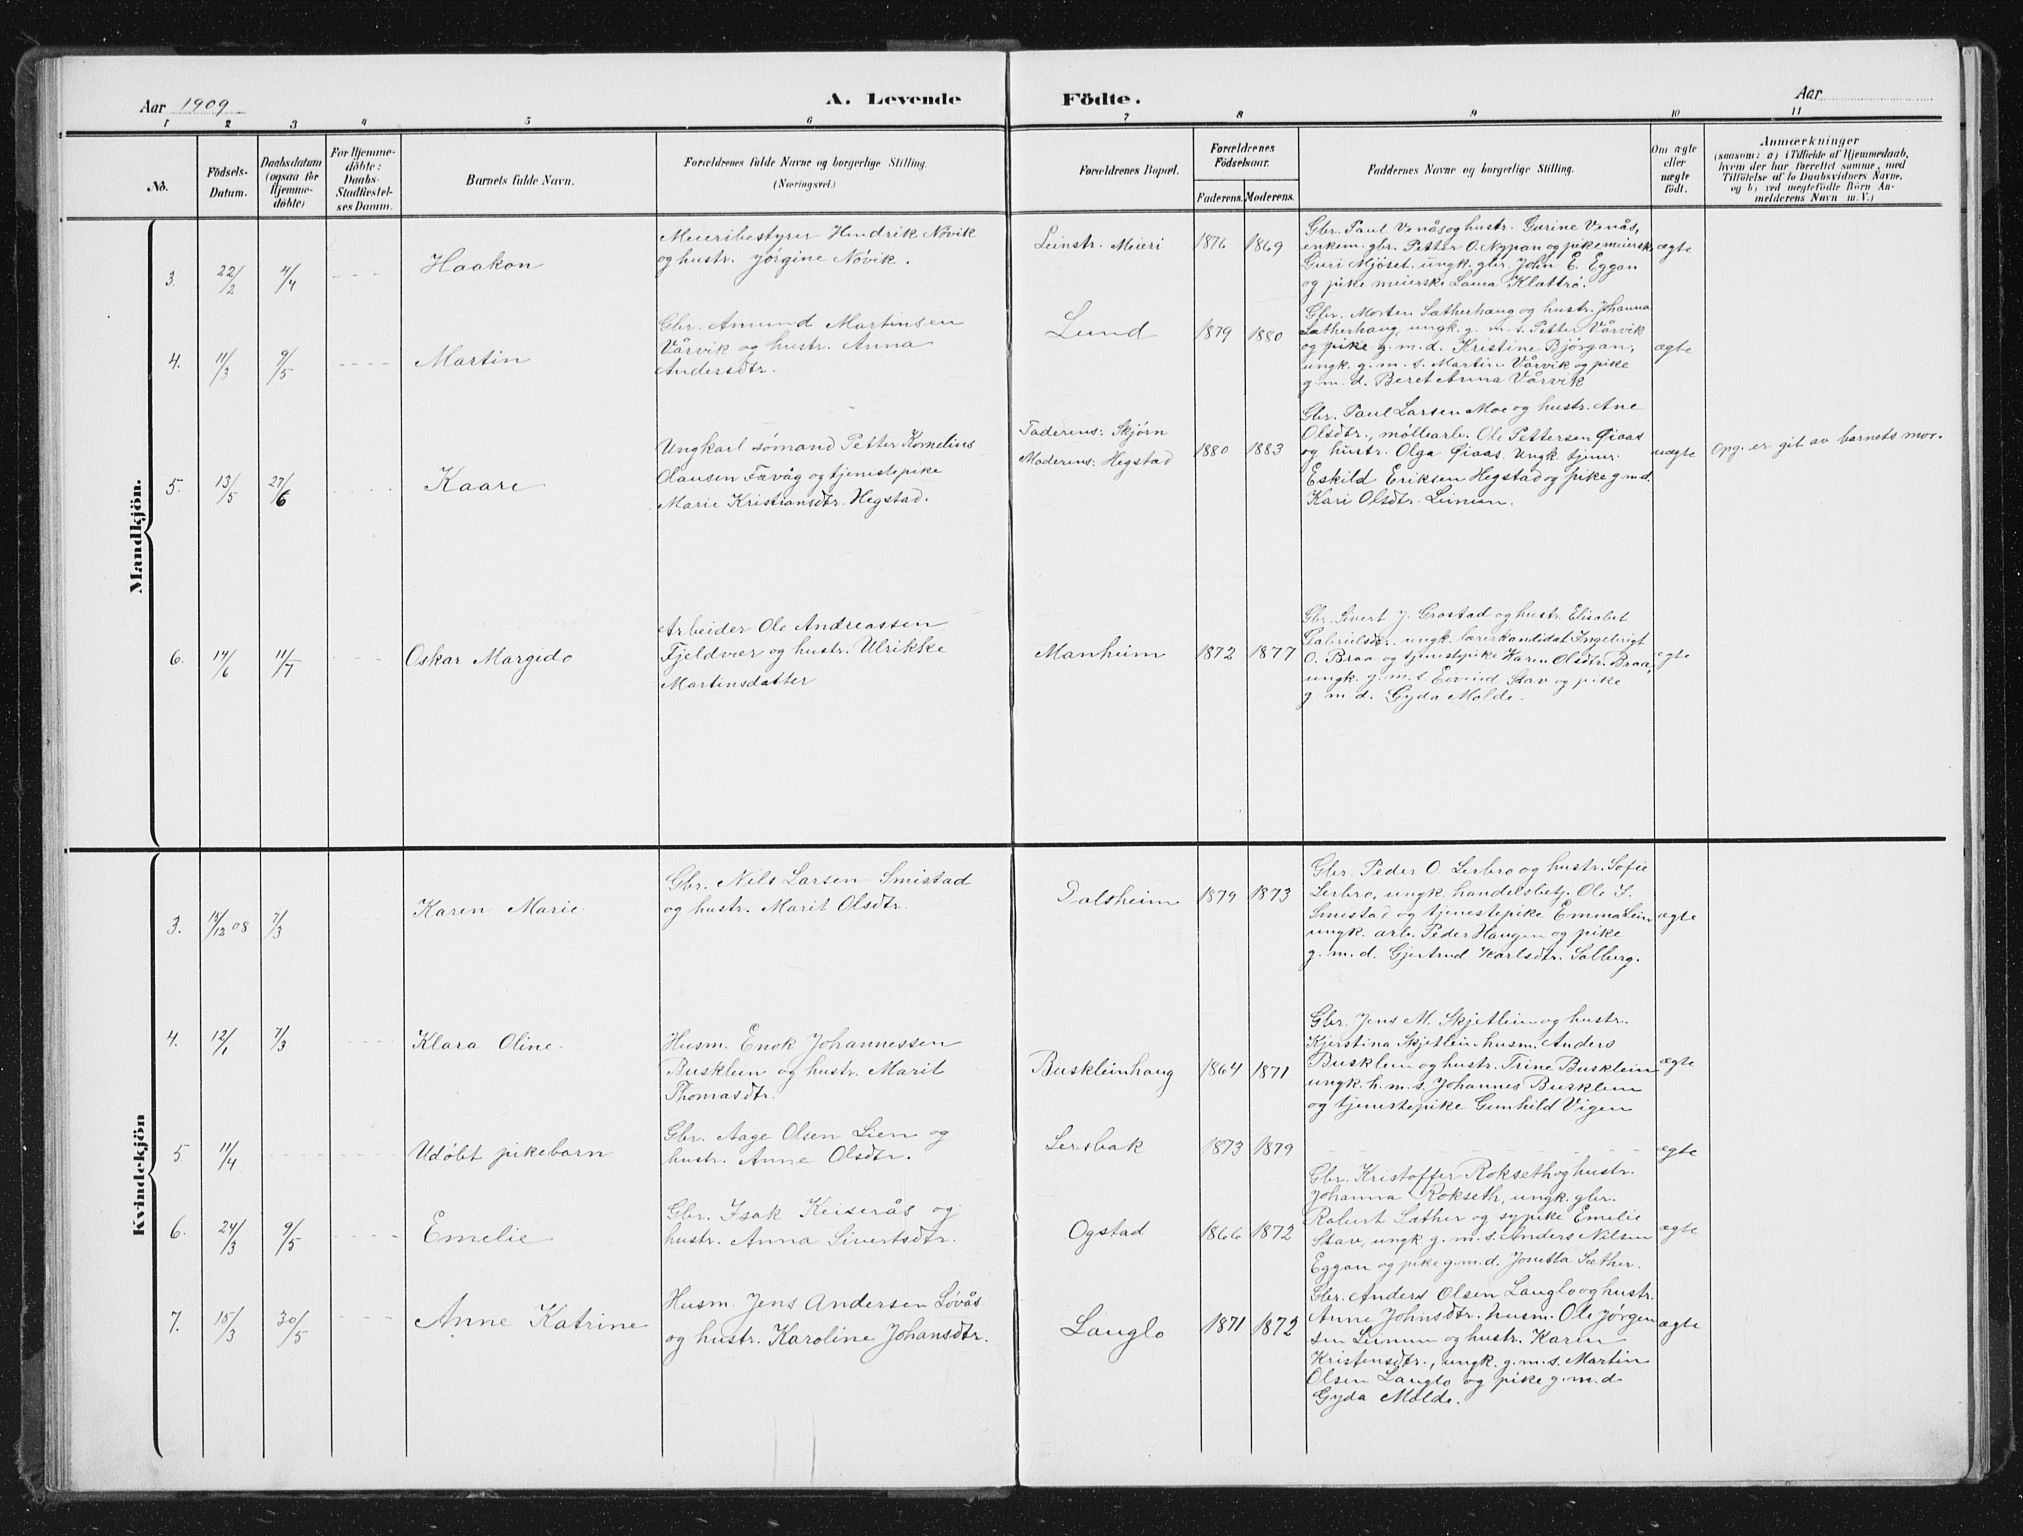 Aar 1909
A. Levende Födte.
Aar
1 2 3 4 5 6 7 8 9 10 11
No.
Födsels-
Datum.
Daabsdatum
(ogsaa for
Hjemme-
döbte)
For Hjemme-
döbte:
Daabs-
Stadfæstel-
ses Datum.
Barnets fulde Navn.
Forældrenes fulde Navne og borgerlige Stilling.
(Næringsvei.)
Forældrenes Bopæl.
Forældrenes
Födselsaar.
Faderens. Moderens.
Faddernes Navne og borgerlige Stilling.
Om ægte
eller
uægte
född.
Anmærkninger
(saasom: a) i Tilfælde af Hjemmedaab,
hvem der har forrettet samme, med
Tilföielse af to Daabsvidners Navne,
og b) ved uægtefödte Börn An-
melderens Navn m. V.)
Mandkjön.
3. 22/2 4/4 Haakon
Meieribestyrer Hendrik Növik
og hustr. Jörgine Növik.
Leinstr. Meieri 1876 1869
Gbr. Paul Venås og hustr. Gurine Venås,
enkem. gbr. Petter O. Nypan og pike meierske
Guri Mjöset. ungk. gbr. John E. Eggan
og pike meierske Laura Klattrö.
ægte
4. 11/3 9/5 Martin
Gbr. Amund Martinsen
Vårvik og hustr. Anna
Andersdtr.
Lund 1879 1880
Gbr. Morten Sætherhaug og hustr. Johanna
Sætherhaug, ungk. g. m. s. Petter Vårvik
og pike g. m. d. Kristine Bjørgan,
ungk. g. m. s. Martin Vårvik og pike
g. m. d. Beret Anna Vårvik
ægte
5. 13/5 27/6 Kaare
Ungkarl sömand Petter Kornelius
Olausen Favåg og tjenestepike
Marie Kristiansdtr. Hegstad.
Faderens: Skjörn
Moderens: Hegstad
1880 1883
Gbr. Paul Larsen Moe og hustr. Ane
Olsdtr., möllearb. Ole Pettersen Øiaas
og hustr. Olga Øiaas. Ungk. tjener
Eskild Eriksen Hegstad og pike g. m. d.
Kari Olsdtr. Leinum.
uægte
Opg. er git av barnets mor.
6. 14/6 11/7 Oskar Margido
Arbeider Ole Andreassen
Fjeldvær og hustr. Ulrikke
Martinsdatter
Manheim 1872 1877
Gbr. Sivert J. Grostad og hustr. Elisabet
Gabrielsdtr. ungk. lærerkandidat Ingebrigt
O. Braa og tjenestepike Karen Olsdtr. Braa,
ungk. g. m. s. Eivind Stav og pike
g. m. d. Gyda Molde.
ægte
Kvindekjön
3. 14/12 08 7/3 Karen Marie
Gbr. Nils Larsen Smistad
og hustr. Marit Olsdtr.
Dalsheim 1879 1873
Gbr. Peder O. Lerbro og hustr. Sofie
Lerbro, ungk. handelsbetj. Ole L.
Smistad og tjenestepike Emma Lein
ungk. arb. Peder Haugen og pike
g. m. d. Gjertrud Karlsdtr. Solberg.
ægte
4. 12/1 7/3 Klara Oline
Husm. Enok Johannessen
Busklein og hustr. Marit
Thomasdtr.
Buskleinhaug 1864 1871
Gbr. Jens M. Skjetlein og hustr.
Kjerstina Skjetlein husm. Anders
Busklein og hustr. Trine Busklein
ungk. h. m. s. Johannes Busklein
og tjenestepike Gunhild Vigen
ægte
5 11/4 Udöbt pikebarn
Gbr. Aage Olsen Lien og
hustr. Anne Olsdtr.
Lersbak 1873 1879
ægte
6. 24/3 9/5 Emelie
Gbr. Isak Keiserås og
hustr. Anna Sivertsdtr.
Ogstad 1866 1872
Gbr. Kristoffer Rokseth og hustr.
Johanna Rokseth, ungk. gbr.
Robert Sæther og sypike Emelie
Stav, ungk. g. m. s. Anders Nilsen
Eggan og pike g. m. d. Jonetta Sæther.
ægte
7. 15/3 30/5 Anne Katrine
Husm. Jens Andersen Lövås
og hustr. Karoline Johansdtr.
Langlo 1871 1872
Gbr. Anders Olsen Langlo og hustr.
Anne Johnsdtr. husm. Ole Jörgen
sen Leinum og hustr. Karen
Kristensdtr., ungk. g. m. s. Martin
Olsen Langlo og pike g. m. d
Gyda Molde.
ægte